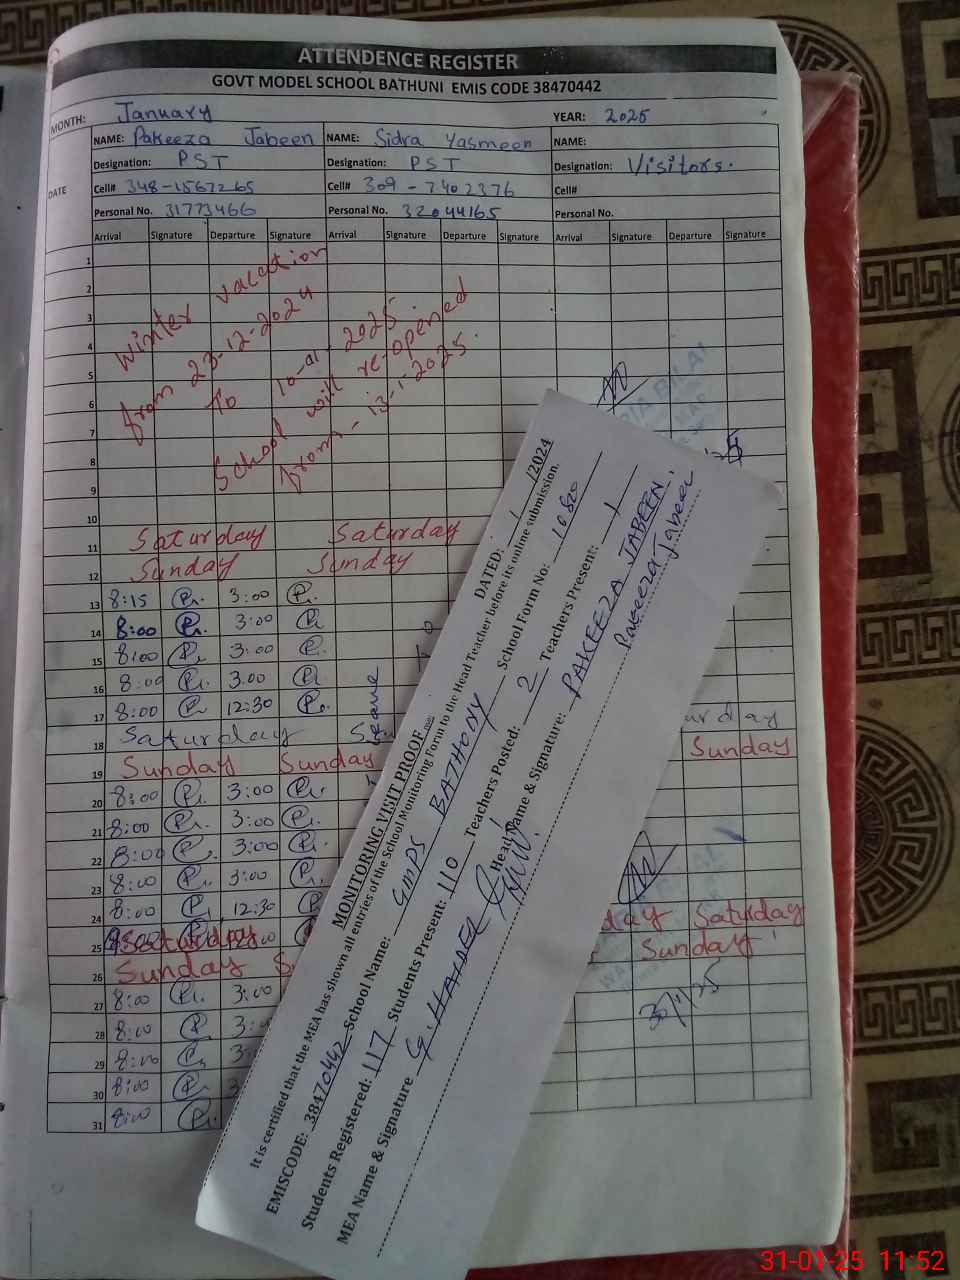 ATTENDENCE REGISTER
GOVT MODEL SCHOOL BATHUNI EMIS CODE 38470442
MONTH: January YEAR: 2025
DATE
NAME: Pakeeza Jabeen NAME: Sidra Yasmeen NAME:
Designation: PST Designation: PST Designation: Visitors.
Cell# 348-1567265 Cell# 309-7402376 Cell#
Personal No. 31773466 Personal No. 32044165 Personal No.
Arrival Signature Departure Signature Arrival Signature Departure Signature Arrival Signature Departure Signature
1
2
3
4
5
6
7
8
9
10
winter vacation
from 23-12-2024
To 10-01-2025
School will re-opened
from - 13-1-2025.
11 Saturday Saturday
12 Sunday Sunday
13 8:15 Pr. 3:00 Pr.
14 8:00 Pr. 3:00 Pr
15 8:00 Pr. 3:00 Pr.
16 8:00 Pr. 3.00 Pr.
17 8:00 Pr 12:30 Pr.
18 Saturday
leave
19 Sunday Sunday Sunday
20 8:00 Pr. 3:00 Pr.
21 8:00 Pr. 3:00 Pr.
22 8:00 Pr. 3:00 Pr.
23 8:00 Pr. 3:00 Pr.
24 8:00 Pr. 12:30 Pr
25 Saturday Saturday
26 Sunday Sunday
27 8:00 Pr. 3:00
28 8:00 Pr.
29 8:00 Pr.
30 8:00 Pr.
31 8:00 Pr.
30/1/25
MONITORING VISIT PROOF DATED: / /2024
It is certified that the MEA has shown all entries of the School Monitoring Form to the Head Teacher before its online submission.
EMISCODE: 38470442 School Name: GMPS BATHONY School Form No: 10820
Students Registered: 117 Students Present: 110 Teachers Posted: 2 Teachers Present: 1
MEA Name & Signature G. HAIDER Head Name & Signature: PAKEEZA JABEEN
Pakeeza Jabeen
31-01-25 11:52